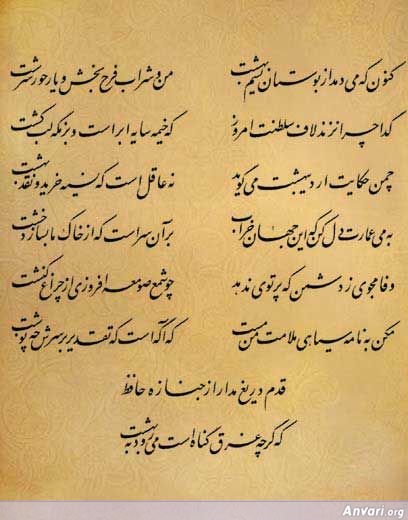 کنون که می دمد از بوستان نسیم بهشت
من و شراب فرح بخش و یار حور سرشت
گدا چرا نزند لاف سلطنت امروز
که خیمه سایه ابر است و بزمگه لب کشت
چمن حکایت اردیبهشت می گوید
نه عاقل است که نسیه خرید و نقد بهشت
به می عمارت دل کن که این جهان خراب
بر آن سر است که از خاک ما بسازد خشت
وفا مجوی ز دشمن که پرتوی ندهد
چو شمع صومعه افروزی از چراغ کنشت
مکن به نامه سیاهی ملامت من مست
که آگه است که تقدیر بر سرش چه نوشت
قدم دریغ مدار از جنازه حافظ
که گرچه غرق گناه است می رود به بهشت
Anvari.org